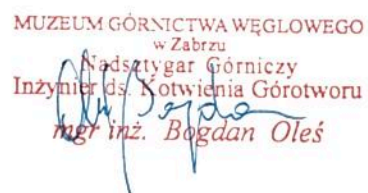 MUZEUM GÓRNICTWA WĘGLOWEGO
w Zabrzu
Nadsztygar Górniczy
Inżynier ds. Kotwienia Górotworu
mgr inż. Bogdan Oleś